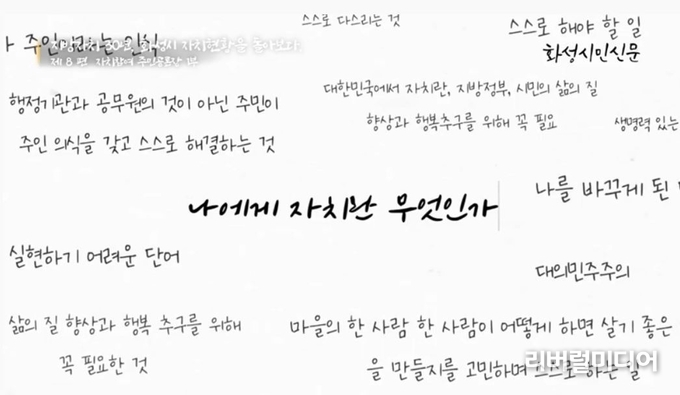 스스로 다스리는 것
스스로 해야 할 일
지방자치 30년, 화성시 자치현황을 돌아보다.
화성시민신문
제 8 편. 자치참여 주민공론장 1부
행정기관과 공무원의 것이 아닌 주민이
주인 의식을 갖고 스스로 해결하는 것
대한민국에서 자치란, 지방정부, 시민의 삶의 질
향상과 행복추구를 위해 꼭 필요
생명력 있는
나에게 자치란 무엇인가
나를 바꾸게 된
실현하기 어려운 단어
대의민주주의
삶의 질 향상과 행복 추구를 위해
꼭 필요한 것
마을의 한 사람 한 사람이 어떻게 하면 살기 좋은
을 만들지를 고민하며 스스로 하는 일
리버럴미디어